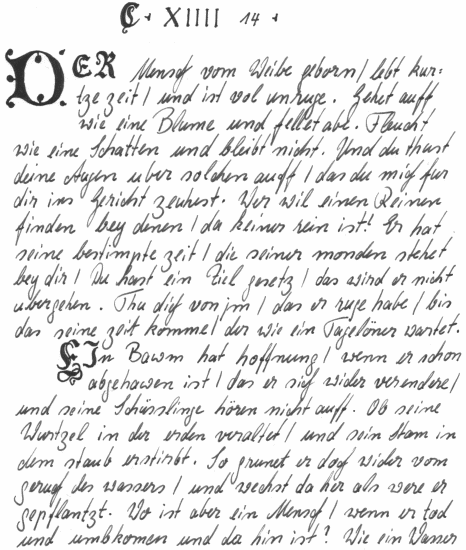 C. XIIII 14.
DER Mensch vom Weibe geborn / lebt kur=
tze zeit / und ist vol unruge. Gehet auff
wie eine Blume und fellet abe. Fleucht
wie eine Schatten und bleibt nicht. Und du thust
deine Augen uber solchen auff / das du mich fur
dir ins Gericht zeuhest. Wer wil einen Reinen
finden bey denen / da keiner rein ist! Er hat
seine bestimpte zeit / die seiner monden stehet
bey dir / Du hast ein Ziel gesetz / das wird er nicht
ubergehen. Thu dich von jm / das er ruge habe / bis
das seine zeit komme / der wie ein Tagelöner wartet.
EIn Bawm hat hoffnung / wenn er schon
abgehawen ist / das er sich wider verendere /
und seine Schüsslinge hören nicht auff. Ob seine
Wurtzel in der erden veraltet / und sein stam in
dem staub erstirbt. So grunet er doch wider vom
geruch des wassers / und wechst da her als were er
gepflantzt. Wo ist aber ein Mensch / wenn er tod
und umbkomen und da hin ist? Wie ein Wasser